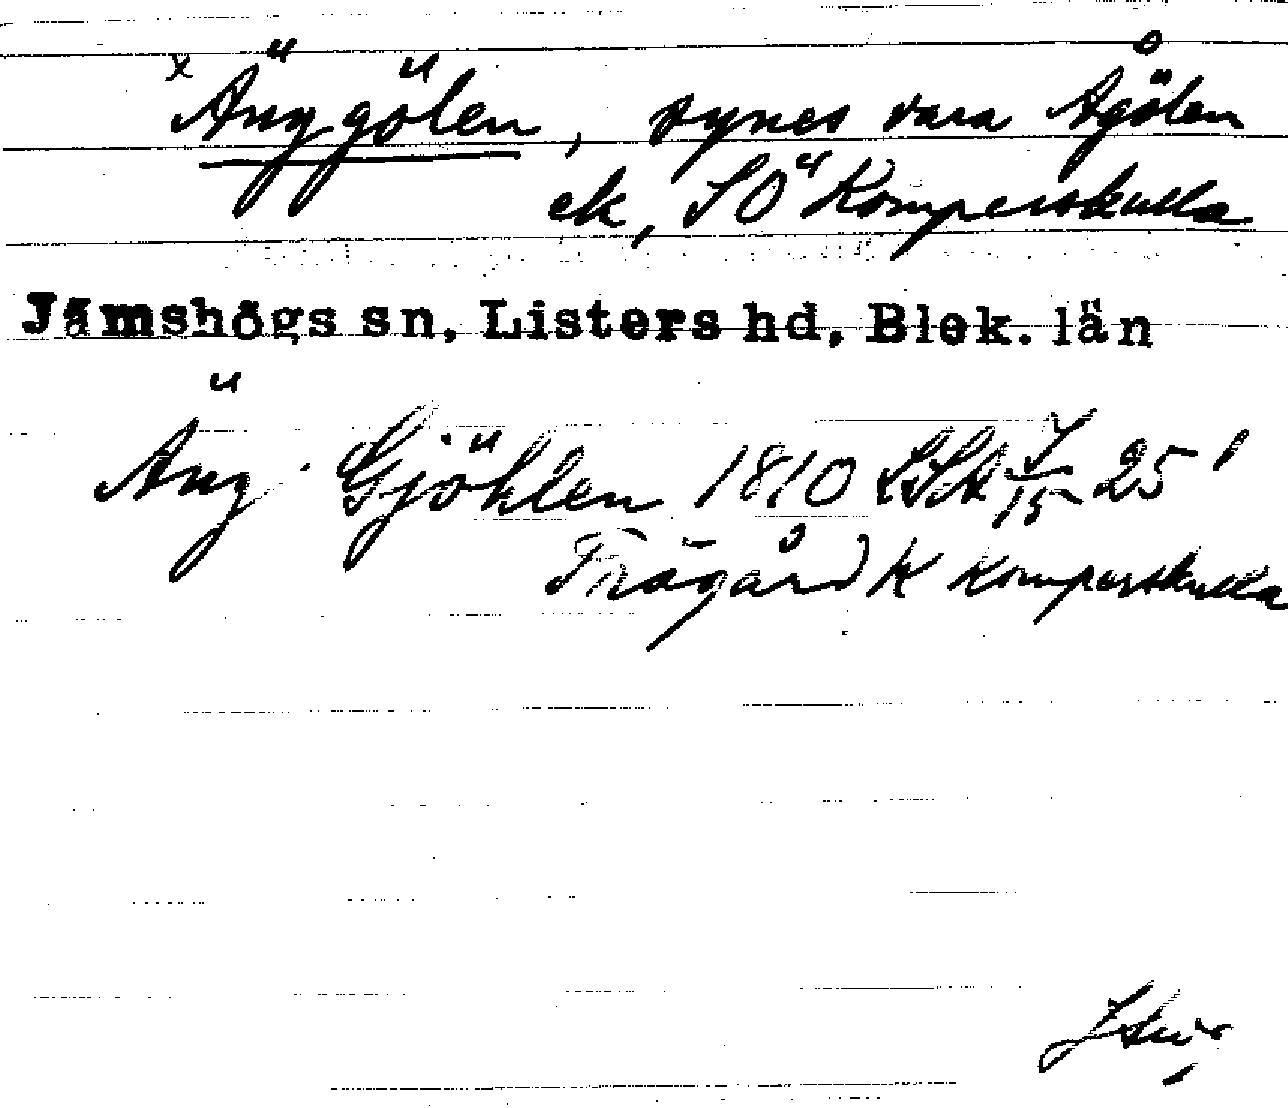 x Änggölen, synes vara Ågölen
ek, SÖ Komperskulla
Jämshögs sn, Listers hd, Blek. län
Äng Gjöhlen 1810 LSA J/15 25 1
Frägård k Komperskulla